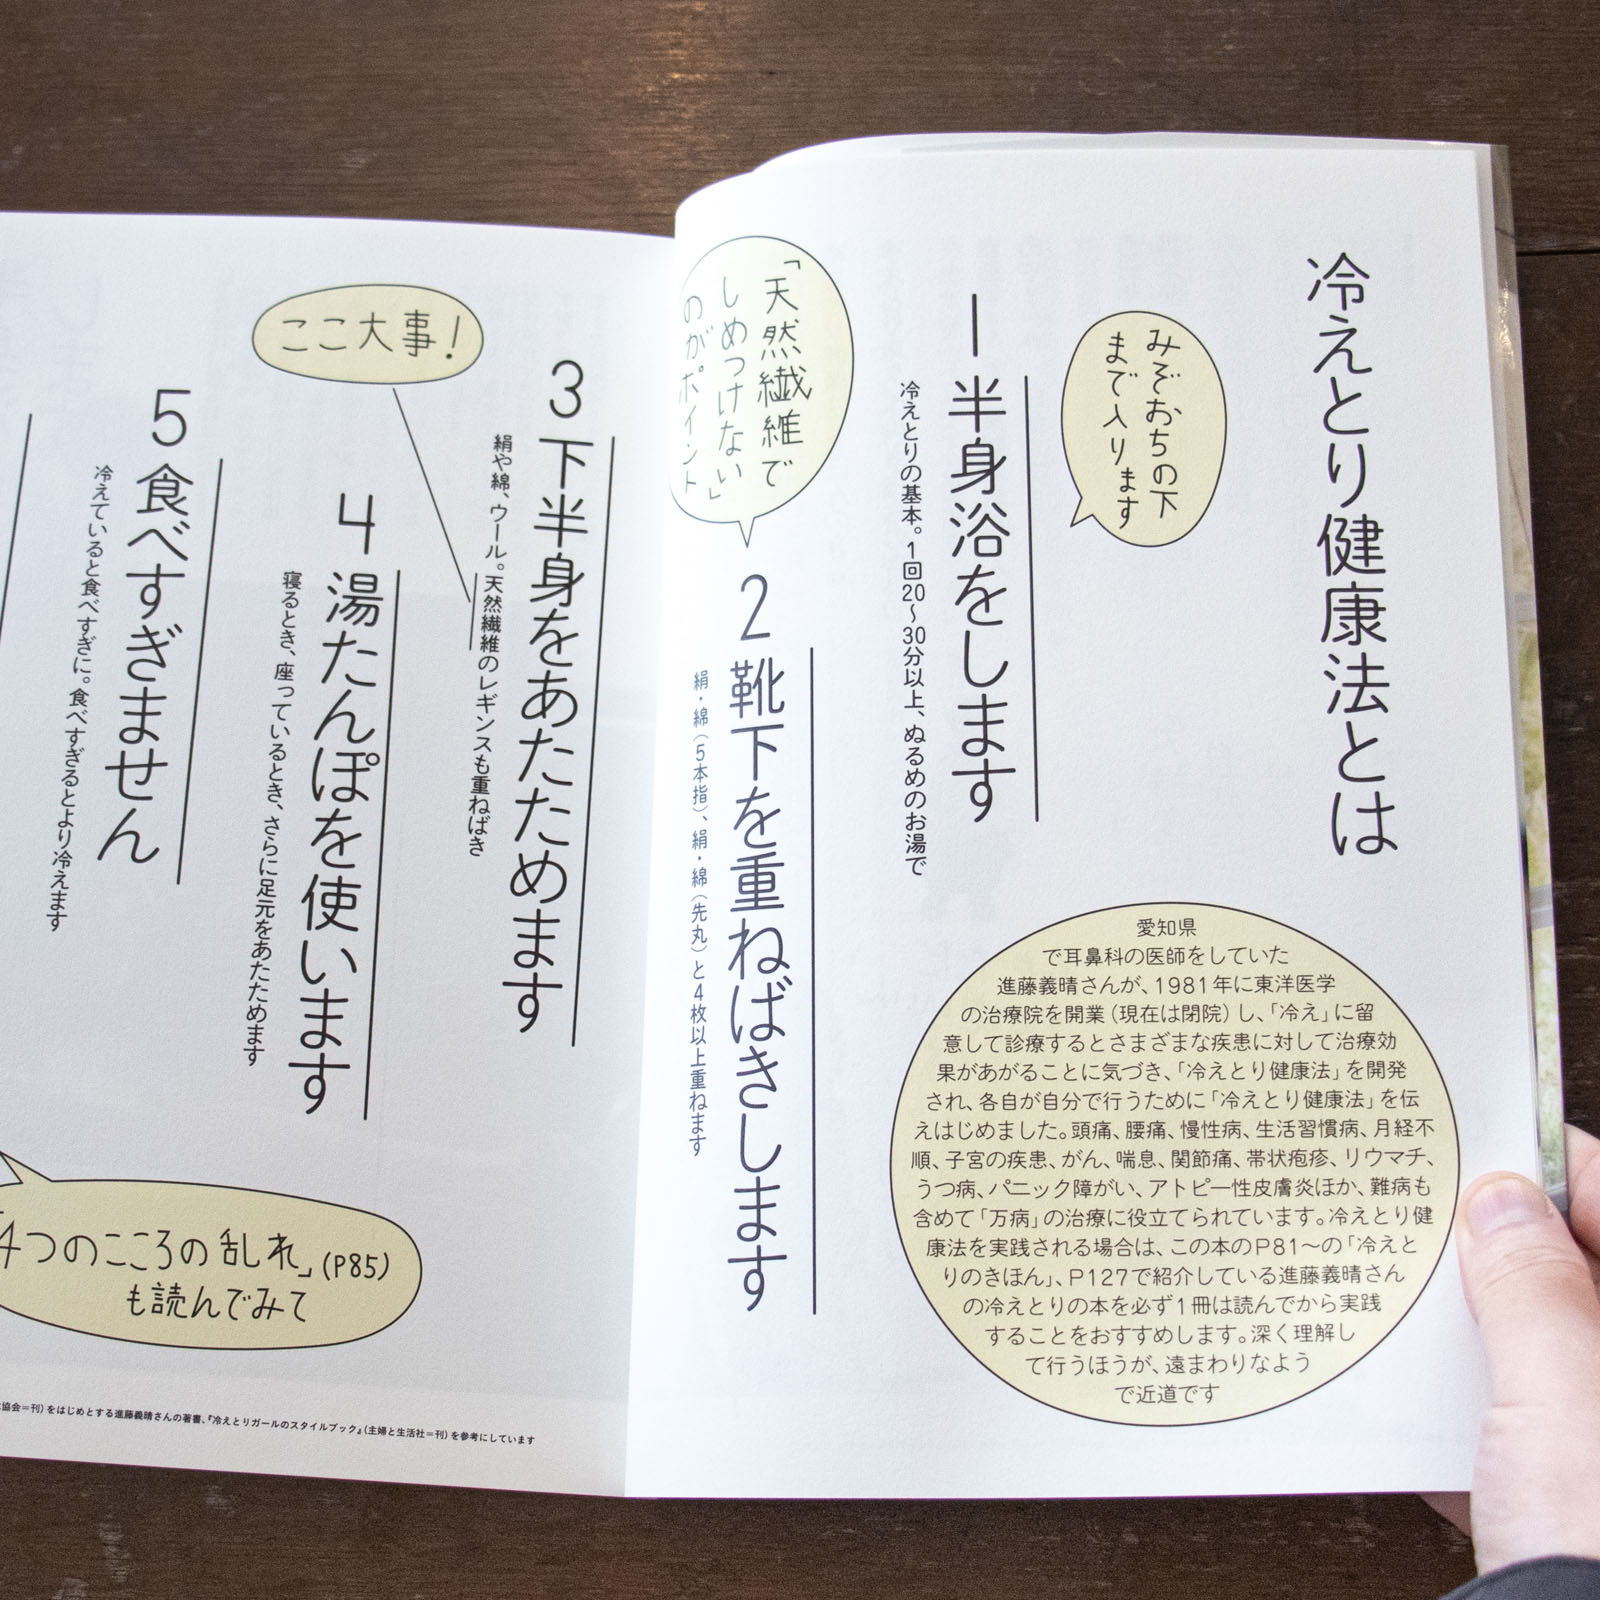 冷えとり健康法とは
みぞおちの下
まで入ります
1 半身浴をします
冷えとりの基本。1回20〜30分以上、ぬるめのお湯で
「天然繊維で
しめつけない」
のがポイント
2 靴下を重ねばきします
絹・綿（5本指）、絹・綿（先丸）と4枚以上重ねます
愛知県
で耳鼻科の医師をしていた
進藤義晴さんが、1981年に東洋医学
の治療院を開業（現在は閉院）し、「冷え」に留
意して診療するとさまざまな疾患に対して治療効
果があがることに気づき、「冷えとり健康法」を開発
され、各自が自分で行うために「冷えとり健康法」を伝
えはじめました。頭痛、腰痛、慢性病、生活習慣病、月経不
順、子宮の疾患、がん、喘息、関節痛、帯状疱疹、リウマチ、
うつ病、パニック障がい、アトピー性皮膚炎ほか、難病も
含めて「万病」の治療に役立てられています。冷えとり健
康法を実践される場合は、この本のP81〜の「冷えと
りのきほん」、P127で紹介している進藤義晴さん
の冷えとりの本を必ず1冊は読んでから実践
することをおすすめします。深く理解し
て行うほうが、遠まわりなよう
で近道です
3 下半身をあたためます
絹や綿、ウール。天然繊維のレギンスも重ねばき
ここ大事！
4 湯たんぽを使います
寝るとき、座っているとき、さらに足元をあたためます
5 食べすぎません
冷えていると食べすぎに。食べすぎるとより冷えます
4つのこころの乱れ」(P85)
も読んでみて
協会＝刊）をはじめとする進藤義晴さんの著書、『冷えとりガールのスタイルブック』（主婦と生活社＝刊）を参考にしています